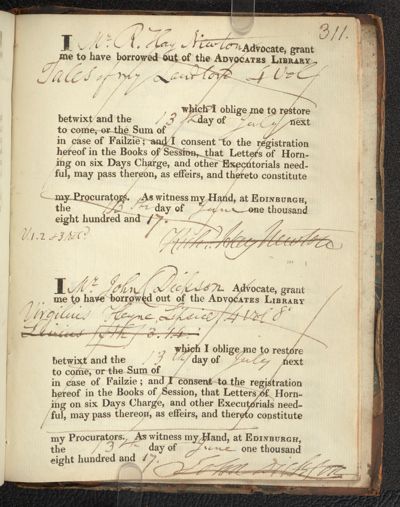 311.
I Mr. R. Hay Newton Advocate, grant
me to have borrowed out of the ADVOCATES LIBRARY
Tales of my Landlord 4 Vol
which I oblige me to restore
betwixt and the 13th day of July next
to come, or the Sum of
in case of Failzie; and I consent to the registration
hereof in the Books of Session, that Letters of Horn-
ing on six Days Charge, and other Executorials need-
ful, may pass thereon, as effeirs, and thereto constitute
my Procurators. As witness my Hand, at EDINBURGH,
the 13th day of June one thousand
eight hundred and 17.
V. 1. 2. & 3 Recd
Hay Newton
I Mr. John Dickson Advocate, grant
me to have borrowed out of the ADVOCATES LIBRARY
Virgilius Heyne 4 Vol 8o
3. 14.
which I oblige me to restore
betwixt and the 13th day of July next
to come, or the Sum of
in case of Failzie; and I consent to the registration
hereof in the Books of Session, that Letters of Horn-
ing on six Days Charge, and other Executorials need-
ful, may pass thereon, as effeirs, and thereto constitute
my Procurators. As witness my Hand, at EDINBURGH,
the 13th day of June one thousand
eight hundred and 17.
John Dickson